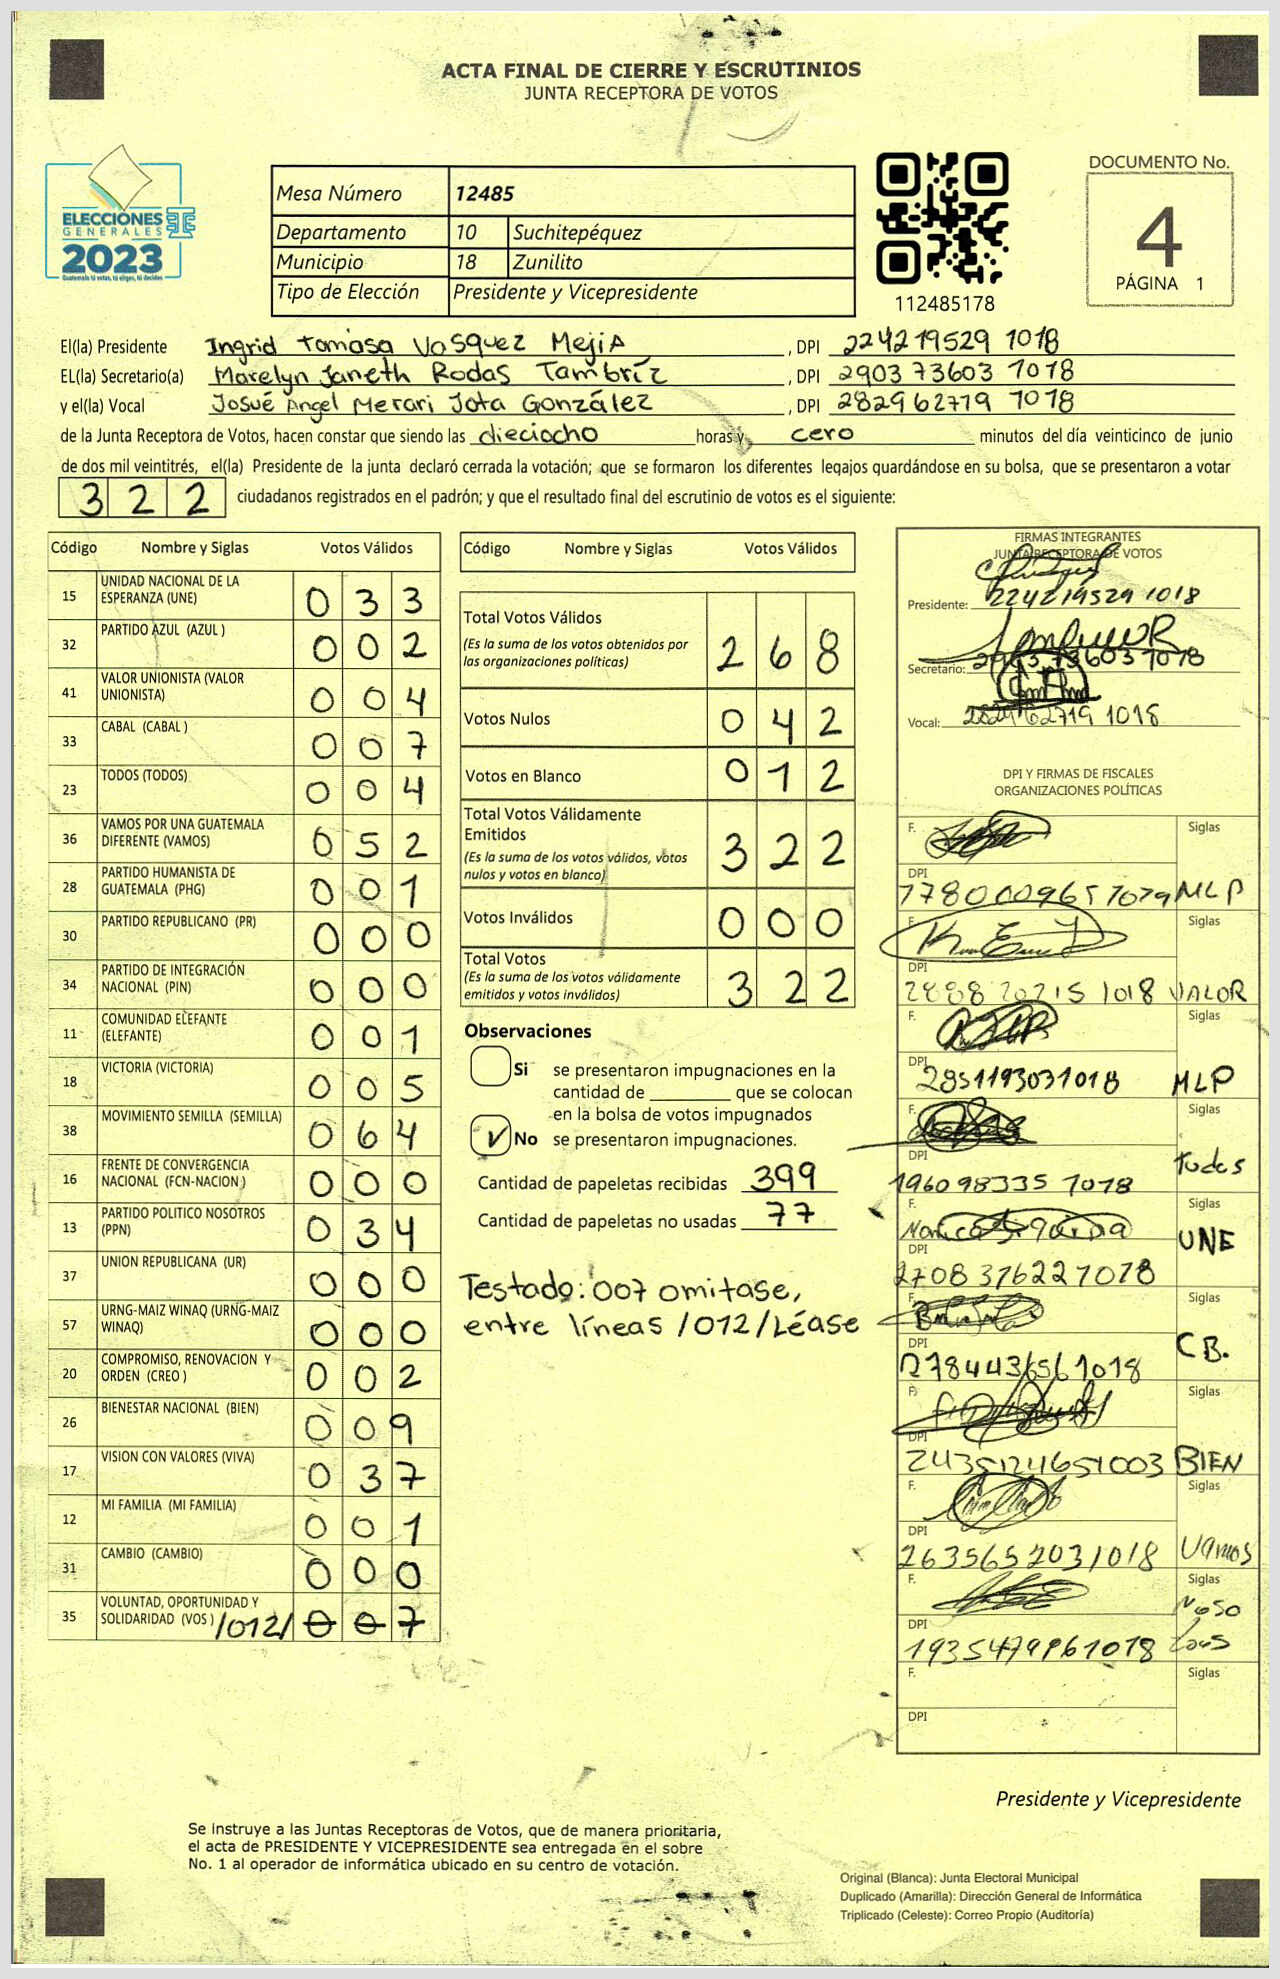 ACTA FINAL DE CIERRE Y ESCRUTINIOS
JUNTA RECEPTORA DE VOTOS
ELECCIONES
GENERALES
2023
Guatemala tú votas, tú eliges, tú decides
Mesa Número 12485
Departamento 10 Suchitepéquez
Municipio 18 Zunilito
Tipo de Elección Presidente y Vicepresidente
112485178
DOCUMENTO No.
4
PÁGINA 1
El(la) Presidente Ingrid Tomasa Vasquez Mejia , DPI 224219529 1018
EL(la) Secretario(a) Marelyn Janeth Rodas Tambríz , DPI 290373603 1018
y el(la) Vocal Josué Angel Merari Jota González , DPI 282962719 1018
de la Junta Receptora de Votos, hacen constar que siendo las dieciocho horas y cero minutos del día veinticinco de junio
de dos mil veintitrés, el(la) Presidente de la junta declaró cerrada la votación; que se formaron los diferentes legajos guardándose en su bolsa, que se presentaron a votar
322 ciudadanos registrados en el padrón; y que el resultado final del escrutinio de votos es el siguiente:
Código Nombre y Siglas Votos Válidos
15 UNIDAD NACIONAL DE LA ESPERANZA (UNE) 033
32 PARTIDO AZUL (AZUL ) 002
41 VALOR UNIONISTA (VALOR UNIONISTA) 004
33 CABAL (CABAL ) 007
23 TODOS (TODOS) 004
36 VAMOS POR UNA GUATEMALA DIFERENTE (VAMOS) 052
28 PARTIDO HUMANISTA DE GUATEMALA (PHG) 001
30 PARTIDO REPUBLICANO (PR) 000
34 PARTIDO DE INTEGRACIÓN NACIONAL (PIN) 000
11 COMUNIDAD ELEFANTE (ELEFANTE) 001
18 VICTORIA (VICTORIA) 005
38 MOVIMIENTO SEMILLA (SEMILLA) 064
16 FRENTE DE CONVERGENCIA NACIONAL (FCN-NACION ) 000
13 PARTIDO POLITICO NOSOTROS (PPN) 034
37 UNION REPUBLICANA (UR) 000
57 URNG-MAIZ WINAQ (URNG-MAIZ WINAQ) 000
20 COMPROMISO, RENOVACION Y ORDEN (CREO ) 002
26 BIENESTAR NACIONAL (BIEN) 009
17 VISION CON VALORES (VIVA) 037
12 MI FAMILIA (MI FAMILIA) 001
31 CAMBIO (CAMBIO) 000
35 VOLUNTAD, OPORTUNIDAD Y SOLIDARIDAD (VOS ) /012/ 007
Código Nombre y Siglas Votos Válidos
Total Votos Válidos
(Es la suma de los votos obtenidos por las organizaciones políticas) 268
Votos Nulos 042
Votos en Blanco 012
Total Votos Válidamente Emitidos
(Es la suma de los votos válidos, votos nulos y votos en blanco) 322
Votos Inválidos 000
Total Votos
(Es la suma de los votos válidamente emitidos y votos inválidos) 322
Observaciones
Si se presentaron impugnaciones en la
cantidad de ________ que se colocan
en la bolsa de votos impugnados
✓ No se presentaron impugnaciones.
Cantidad de papeletas recibidas 399
Cantidad de papeletas no usadas 77
Testado: 007 omitase,
entre líneas /012/Léase
FIRMAS INTEGRANTES
JUNTA RECEPTORA DE VOTOS
Presidente: 224219529 1018
Secretario: 290373603 1018
Vocal: 282962719 1018
DPI Y FIRMAS DE FISCALES
ORGANIZACIONES POLÍTICAS
F. Siglas
DPI
1780009651019 MLP
F. Siglas
DPI
1018 VALOR
F. Siglas
DPI
2851193031018 MLP
F. Siglas
DPI
196098335 1018 todos
F. Siglas
DPI
2708376221018 UNE
F. Siglas
DPI
CB.
F. Siglas
DPI
BIEN
F. Siglas
DPI
2635652031018 Vamos
F. Siglas
DPI
Nosotros
F. Siglas
DPI
Presidente y Vicepresidente
Se instruye a las Juntas Receptoras de Votos, que de manera prioritaria,
el acta de PRESIDENTE Y VICEPRESIDENTE sea entregada en el sobre
No. 1 al operador de informática ubicado en su centro de votación.
Original (Blanca): Junta Electoral Municipal
Duplicado (Amarilla): Dirección General de Informática
Triplicado (Celeste): Correo Propio (Auditoría)